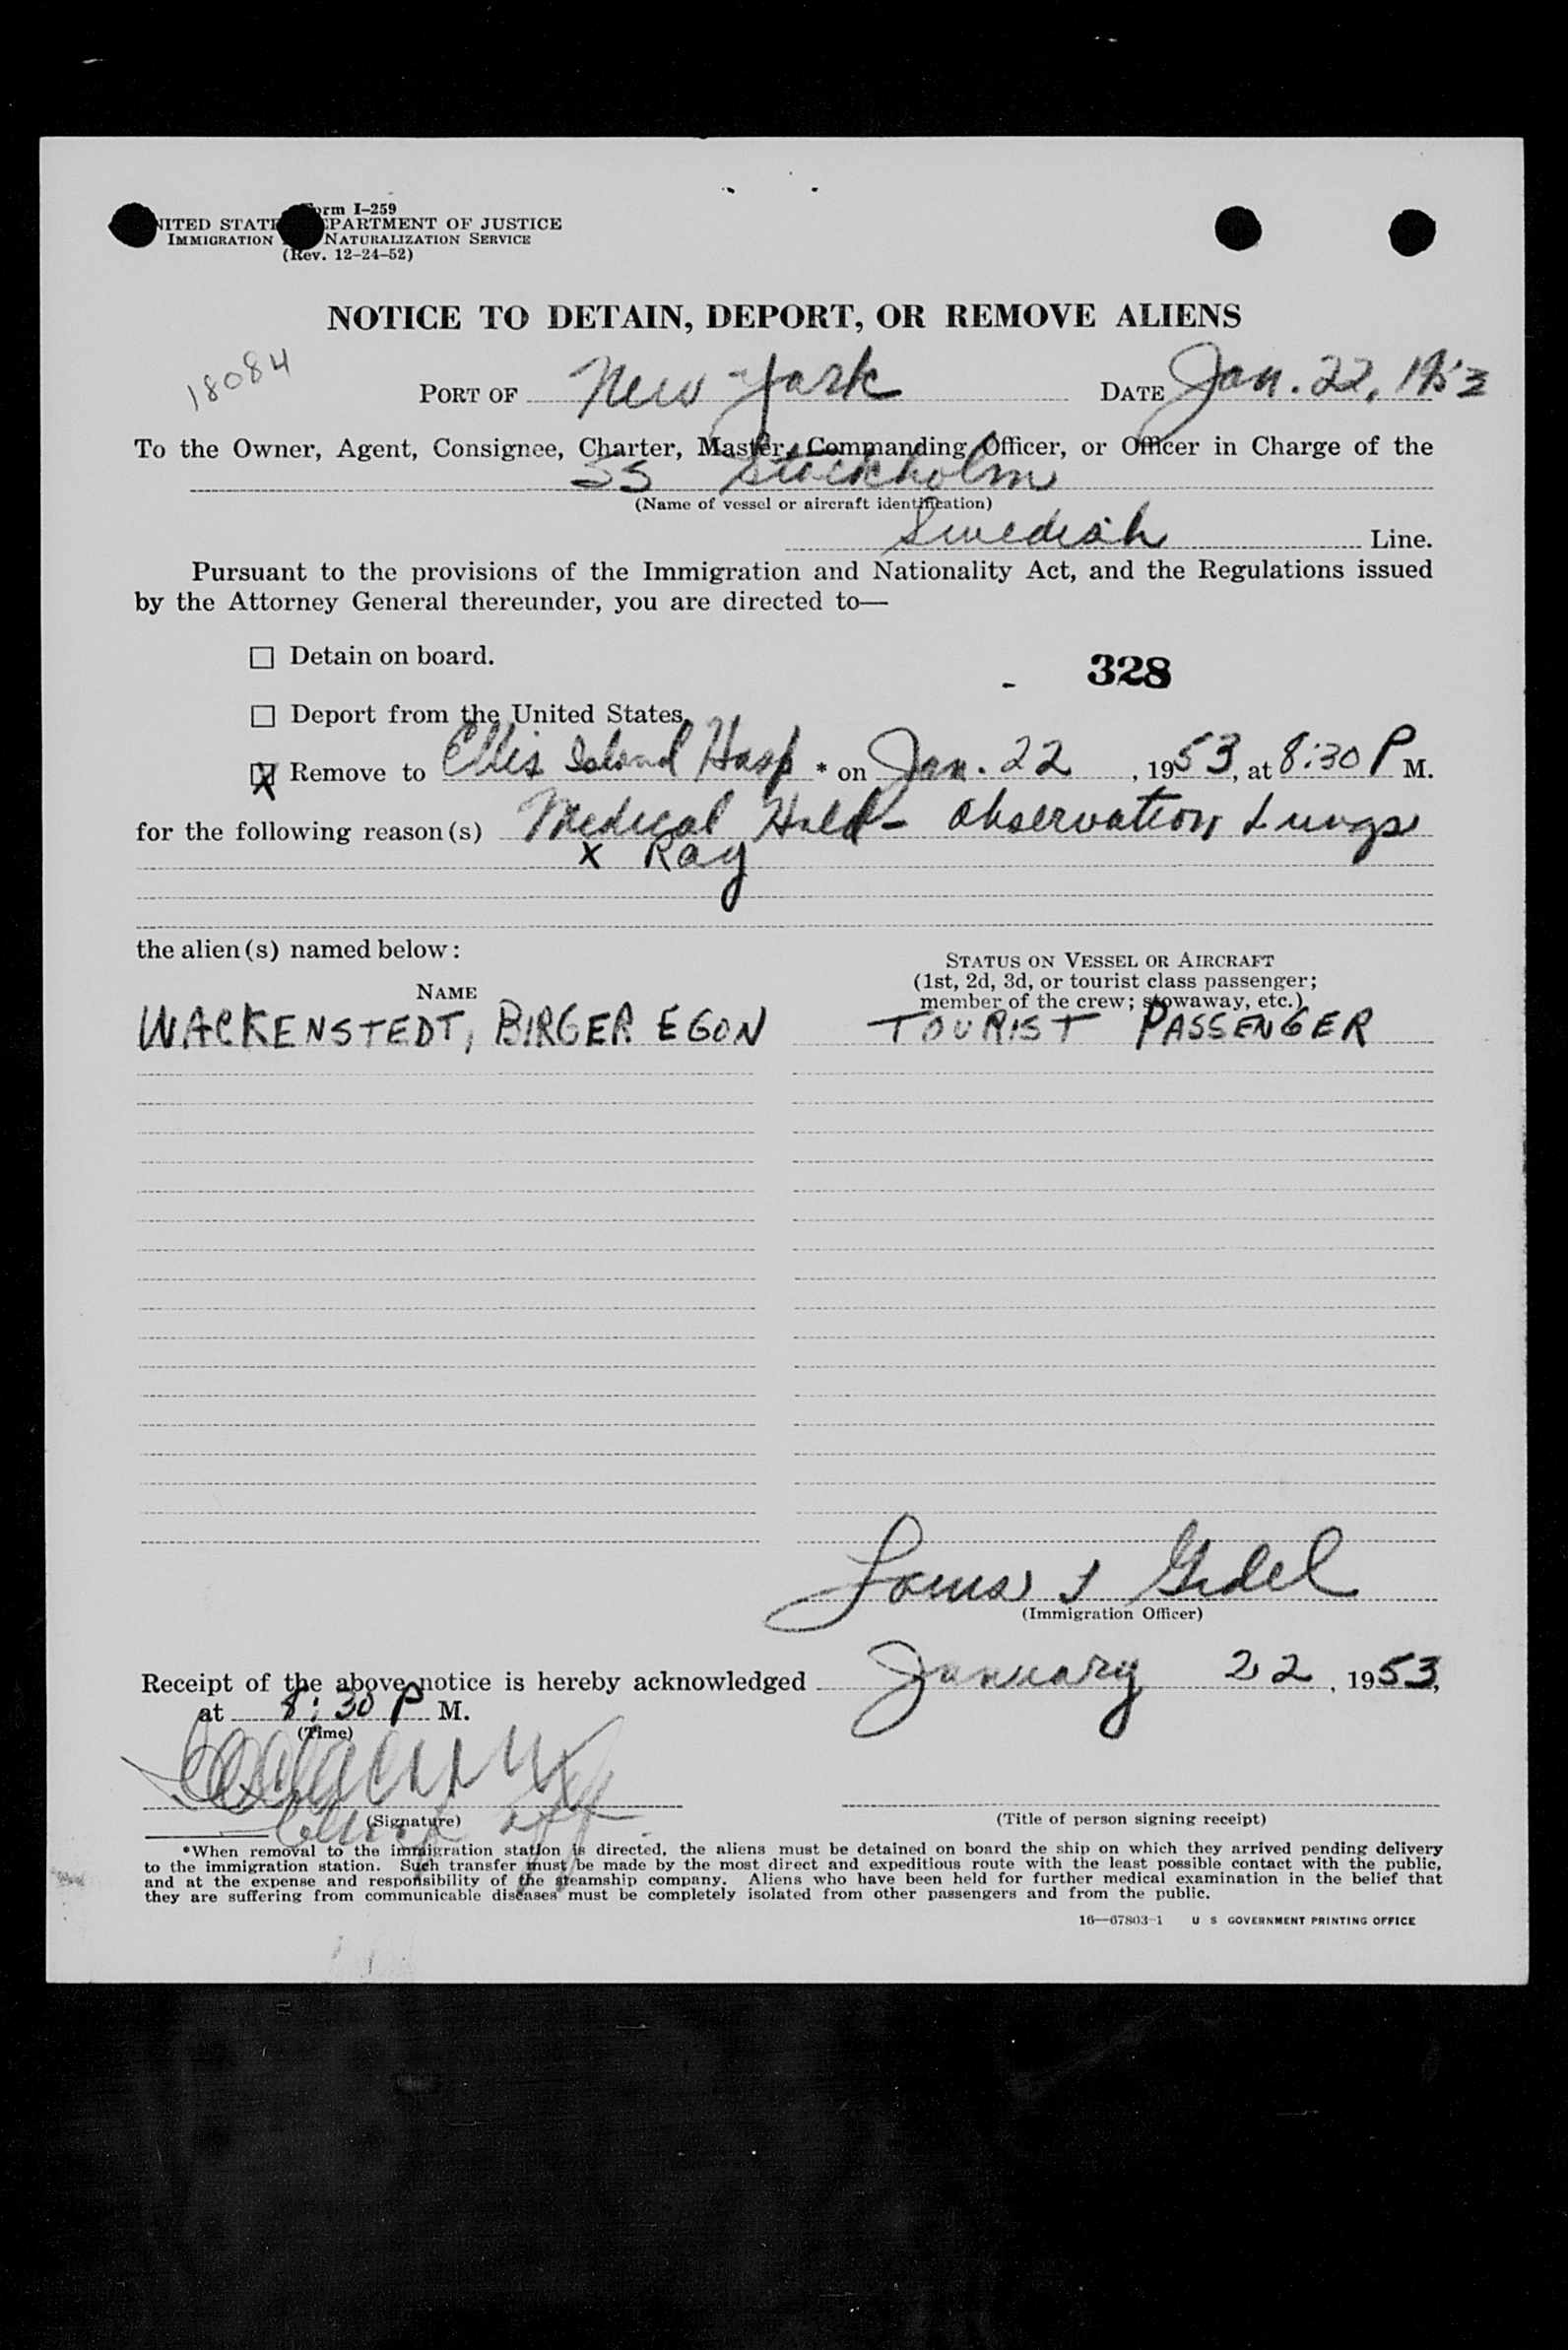 Form I-259
UNITED STATES DEPARTMENT OF JUSTICE
IMMIGRATION NATURALIZATION SERVICE
(Rev. 12-24-52)
NOTICE TO DETAIN, DEPORT, OR REMOVE ALIENS
18084
PORT OF New York DATE Jan. 22, 1953
To the Owner, Agent, Consignee, Charter, Master, Commanding Officer, or Officer in Charge of the
SS Stockholm
(Name of vessel or aircraft identification)
Swedish Line.
Pursuant to the provisions of the Immigration and Nationality Act, and the Regulations issued
by the Attorney General thereunder, you are directed to—
☐ Detain on board.
328
☐ Deport from the United States.
☒ Remove to Ellis Island Hosp * on Jan. 22, 1953, at 8:30 P M.
for the following reason(s) Medical Hold - Observation Lungs
X Ray
the alien(s) named below:
STATUS ON VESSEL OR AIRCRAFT
(1st, 2d, 3d, or tourist class passenger;
member of the crew; stowaway, etc.)
NAME
WACKENSTEDT, BIRGER EGON TOURIST PASSENGER
Louis Gidel
(Immigration Officer)
Receipt of the above notice is hereby acknowledged January 22, 1953,
at 8:30 P M.
(Time)
(Signature) (Title of person signing receipt)
*When removal to the immigration station is directed, the aliens must be detained on board the ship on which they arrived pending delivery
to the immigration station. Such transfer must be made by the most direct and expeditious route with the least possible contact with the public,
and at the expense and responsibility of the steamship company. Aliens who have been held for further medical examination in the belief that
they are suffering from communicable diseases must be completely isolated from other passengers and from the public.
16—67803-1 U S GOVERNMENT PRINTING OFFICE